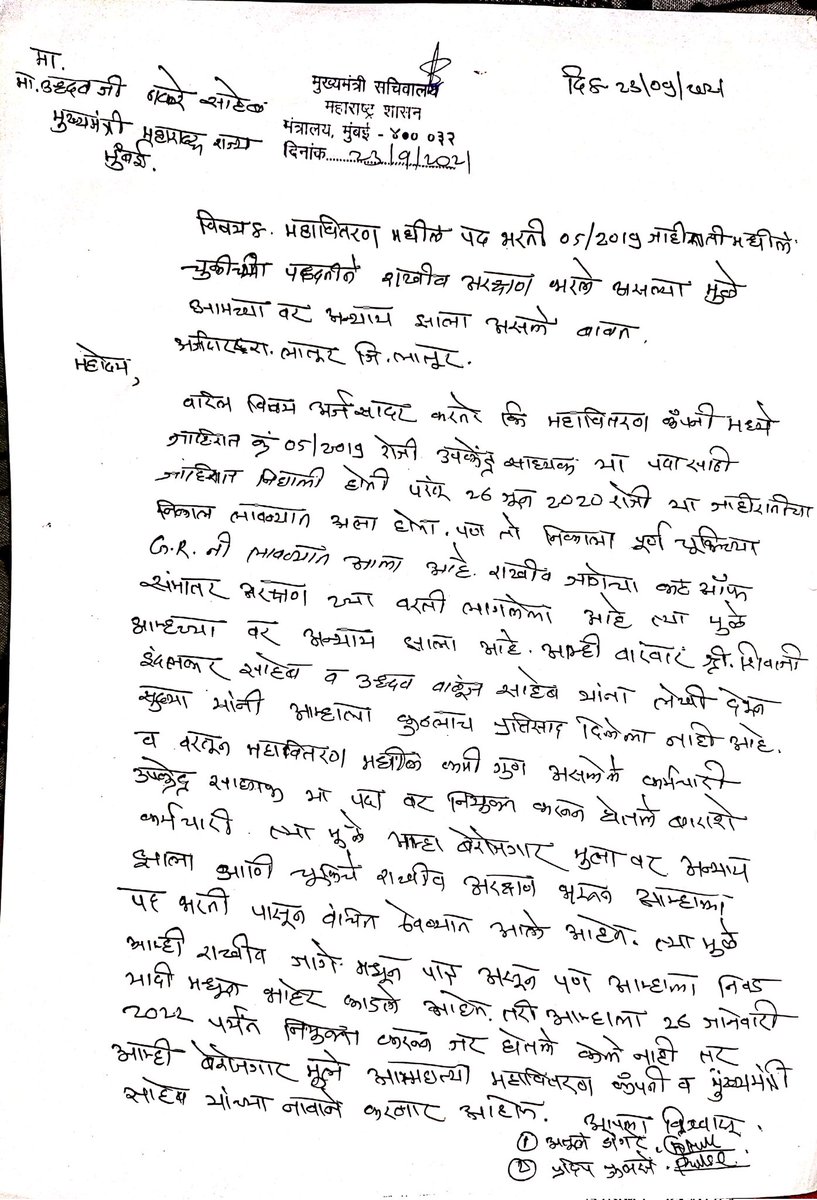 मा.
मा. उध्दवजी ठाकरे साहेब
मुख्यमंत्री महाराष्ट्र राज्य
मुंबई.
मुख्यमंत्री सचिवालय
महाराष्ट्र शासन
मंत्रालय, मुंबई - ४०० ०३२
दिनांक......23/9/2021
दि 23/09/2021
विषय:- महावितरण मधील पद भरती 05/2019 जाहीराती मधील
चुकीच्या पद्धतीने राखीव आरक्षण भरले असल्या मुळे
आमच्या वर अन्याय झाला असले बाबत.
अर्जदार लातूर जि. लातूर.
महोदय,
वरिल विषय अर्ज सादर करतो कि महावितरण कंपनी मध्ये
जाहिरात क्रं 05/2019 रोजी उपकेंद्र साह्यक या पदा साठी
जाहिरात निघाली होती परंतु 26 जून 2020 रोजी या जाहीरातीचा
निकाल लावण्यात आला होता. पण तो निकाल पूर्ण चूकिच्या
G.R. नी लावण्यात आला आहे. राखीव जागेचा कट ऑफ
समांतर आरक्षण च्या वरती लागलेला आहे त्या मुळे
आमच्या वर अन्याय झाला आहे. आम्ही वारंवार श्री. शिवाजी
इंदलकर साहेब व उध्दव वाळूंज साहेब यांना लेखी देऊन
सुध्दा यांनी आम्हाला कुठलाच प्रतिसाद दिलेला नाही आहे.
व वरतून महावितरण मधील कमी गुण असलेले कर्मचारी
उपकेंद्र साह्यक या पदा वर नियुक्त करुन घेतले
कर्मचारी. त्या मुळे आम्हा बेरोजगार मुला वर अन्याय
झाला आणि चूकिचे राखीव आरक्षण भरून आम्हाला
पद भरती पासून वंचित ठेवण्यात आले आहोत. त्या मुळे
आम्ही राखीव जागे मधून पात्र असून पण आम्हाला निवड
यादी मधून बाहेर काढले आहोत. तरी आम्हाला 26 जानेवारी
2022 पर्यंत नियुक्त करून जर घेतले केले नाही तर
आम्ही बेरोजगार मूले आत्महत्या महावितरण कंपनी व मुख्यमंत्री
साहेब यांच्या नावाने करनार आहोत.
आपला विश्वासू.
① अमूल
② प्रदिप